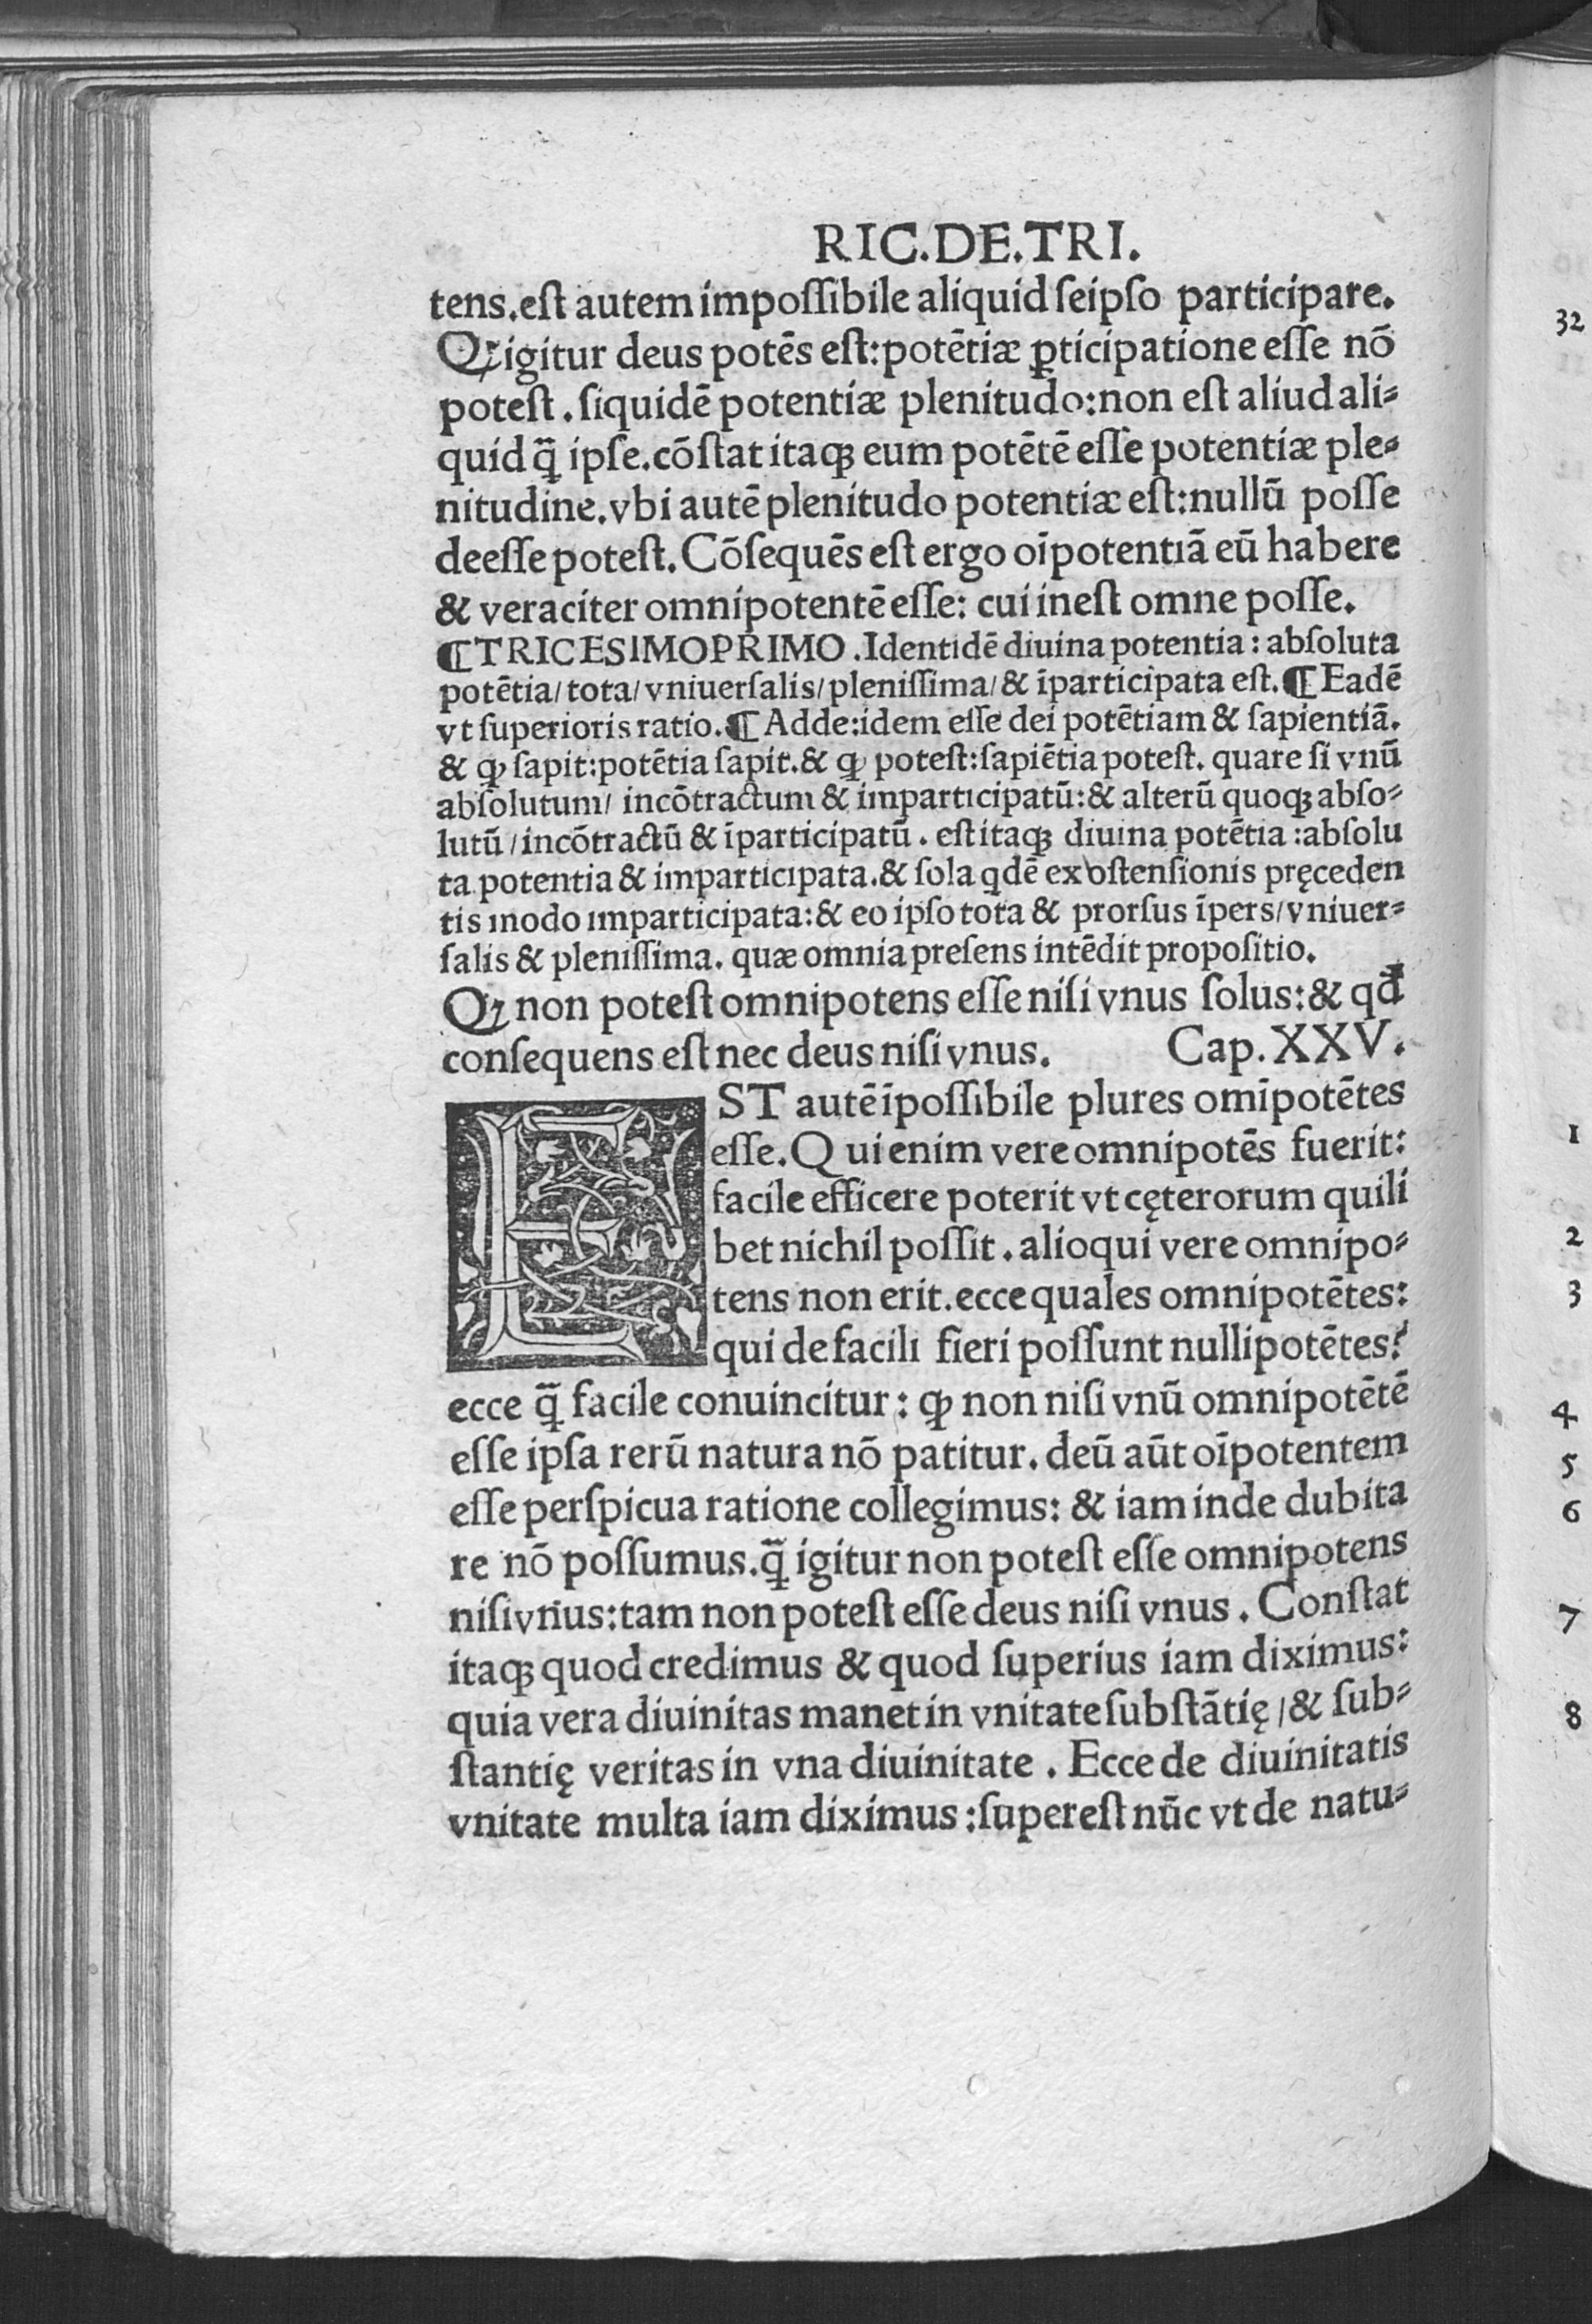 RIC.DE.TRI.
tens.eſt autem impoſſibile aliquid ſeipſo participare.
Qꝛ igitur deus potēs eſt:potētiæ ꝑticipatione eſſe nō
poteſt . ſiquidē potentiæ plenitudo:non eſt aliud ali⸗
quid q̃ ipſe.cōſtat itaqꝫ eum potētē eſſe potentiæ ple⸗
nitudine.vbi autē plenitudo potentiæ eſt:nullū poſſe
deeſſe poteſt.Cōſequēs eſt ergo oīpotentiā eū habere
& veraciter omnipotentē eſſe: cui ineſt omne poſſe.
¶TRICESIMOPRIMO .Identidē diuina potentia: abſoluta
potētia/tota/vniuerſalis/pleniſſima/& īparticipata eſt.¶Eadē
vt ſuperioris ratio.¶Adde:idem eſſe dei potētiam & ſapientiā.
& ꝙ ſapit:potētia ſapit.& ꝙ poteſt:ſapiētia poteſt. quare ſi vnū
abſolutum/ incōtractum & imparticipatū:& alterū quoqꝫ abſo⸗
lutū/incōtractū & īparticipatū . eſt itaqꝫ diuina potētia:abſolu
ta potentia & imparticipata.& ſola qdē ex oſtenſionis pręceden
tis modo imparticipata:& eo ipſo tota & prorſus īpers/vniuer⸗
ſalis & pleniſſima. quæ omnia preſens intēdit propoſitio.
Qꝛ non poteſt omnipotens eſſe niſi vnus ſolus:& qđ
conſequens eſt nec deus niſi vnus. Cap.XXV.
EST autē īpoſſibile plures omīpotētes
eſſe.Q ui enim vere omnipotēs fuerit:
facile efficere poterit vt cęterorum quili
bet nichil poſſit . alioqui vere omnipo⸗
tens non erit.ecce quales omnipotētes:
qui de facili fieri poſſunt nullipotētes?
ecce q̃ facile conuincitur: ꝙ non niſi vnū omnipotētē
eſſe ipſa rerū natura nō patitur.deū aūt oīpotentem
eſſe perſpicua ratione collegimus: & iam inde dubita
re nō poſſumus.q̃ igitur non poteſt eſſe omnipotens
niſi vnus:tam non poteſt eſſe deus niſi vnus . Conſtat
itaqꝫ quod credimus & quod ſuperius iam diximus:
quia vera diuinitas manet in vnitate ſubſtātię/& ſub⸗
ſtantię veritas in vna diuinitate . Ecce de diuinitatis
vnitate multa iam diximus:ſupereſt nūc vt de natu⸗
32
1
2
3
4
5
6
7
8